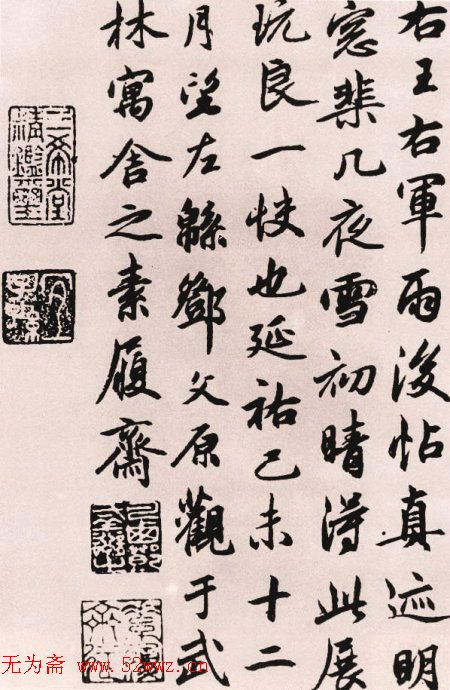 右王右軍雨後帖真迹明
窓棐几夜雪初晴得此展
玩良一快也延祐己未十二
月望左緜鄧文原觀于武
林寓舍之素履齋
三希堂精鑑璽
宜子孫
无为斋 www.52wwz.cn